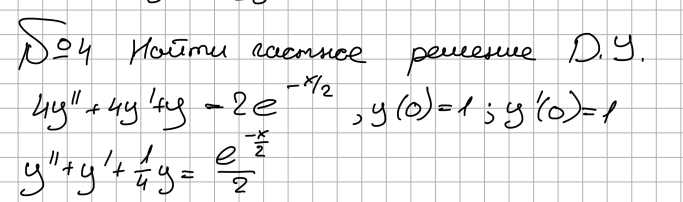 №4 Найти частное решение Д.У.
4y'' + 4y' + y - 2e^{-x/2}, y(0)=1; y'(0)=1
y'' + y' + \frac{1}{4}y = \frac{e^{-\frac{x}{2}}}{2}